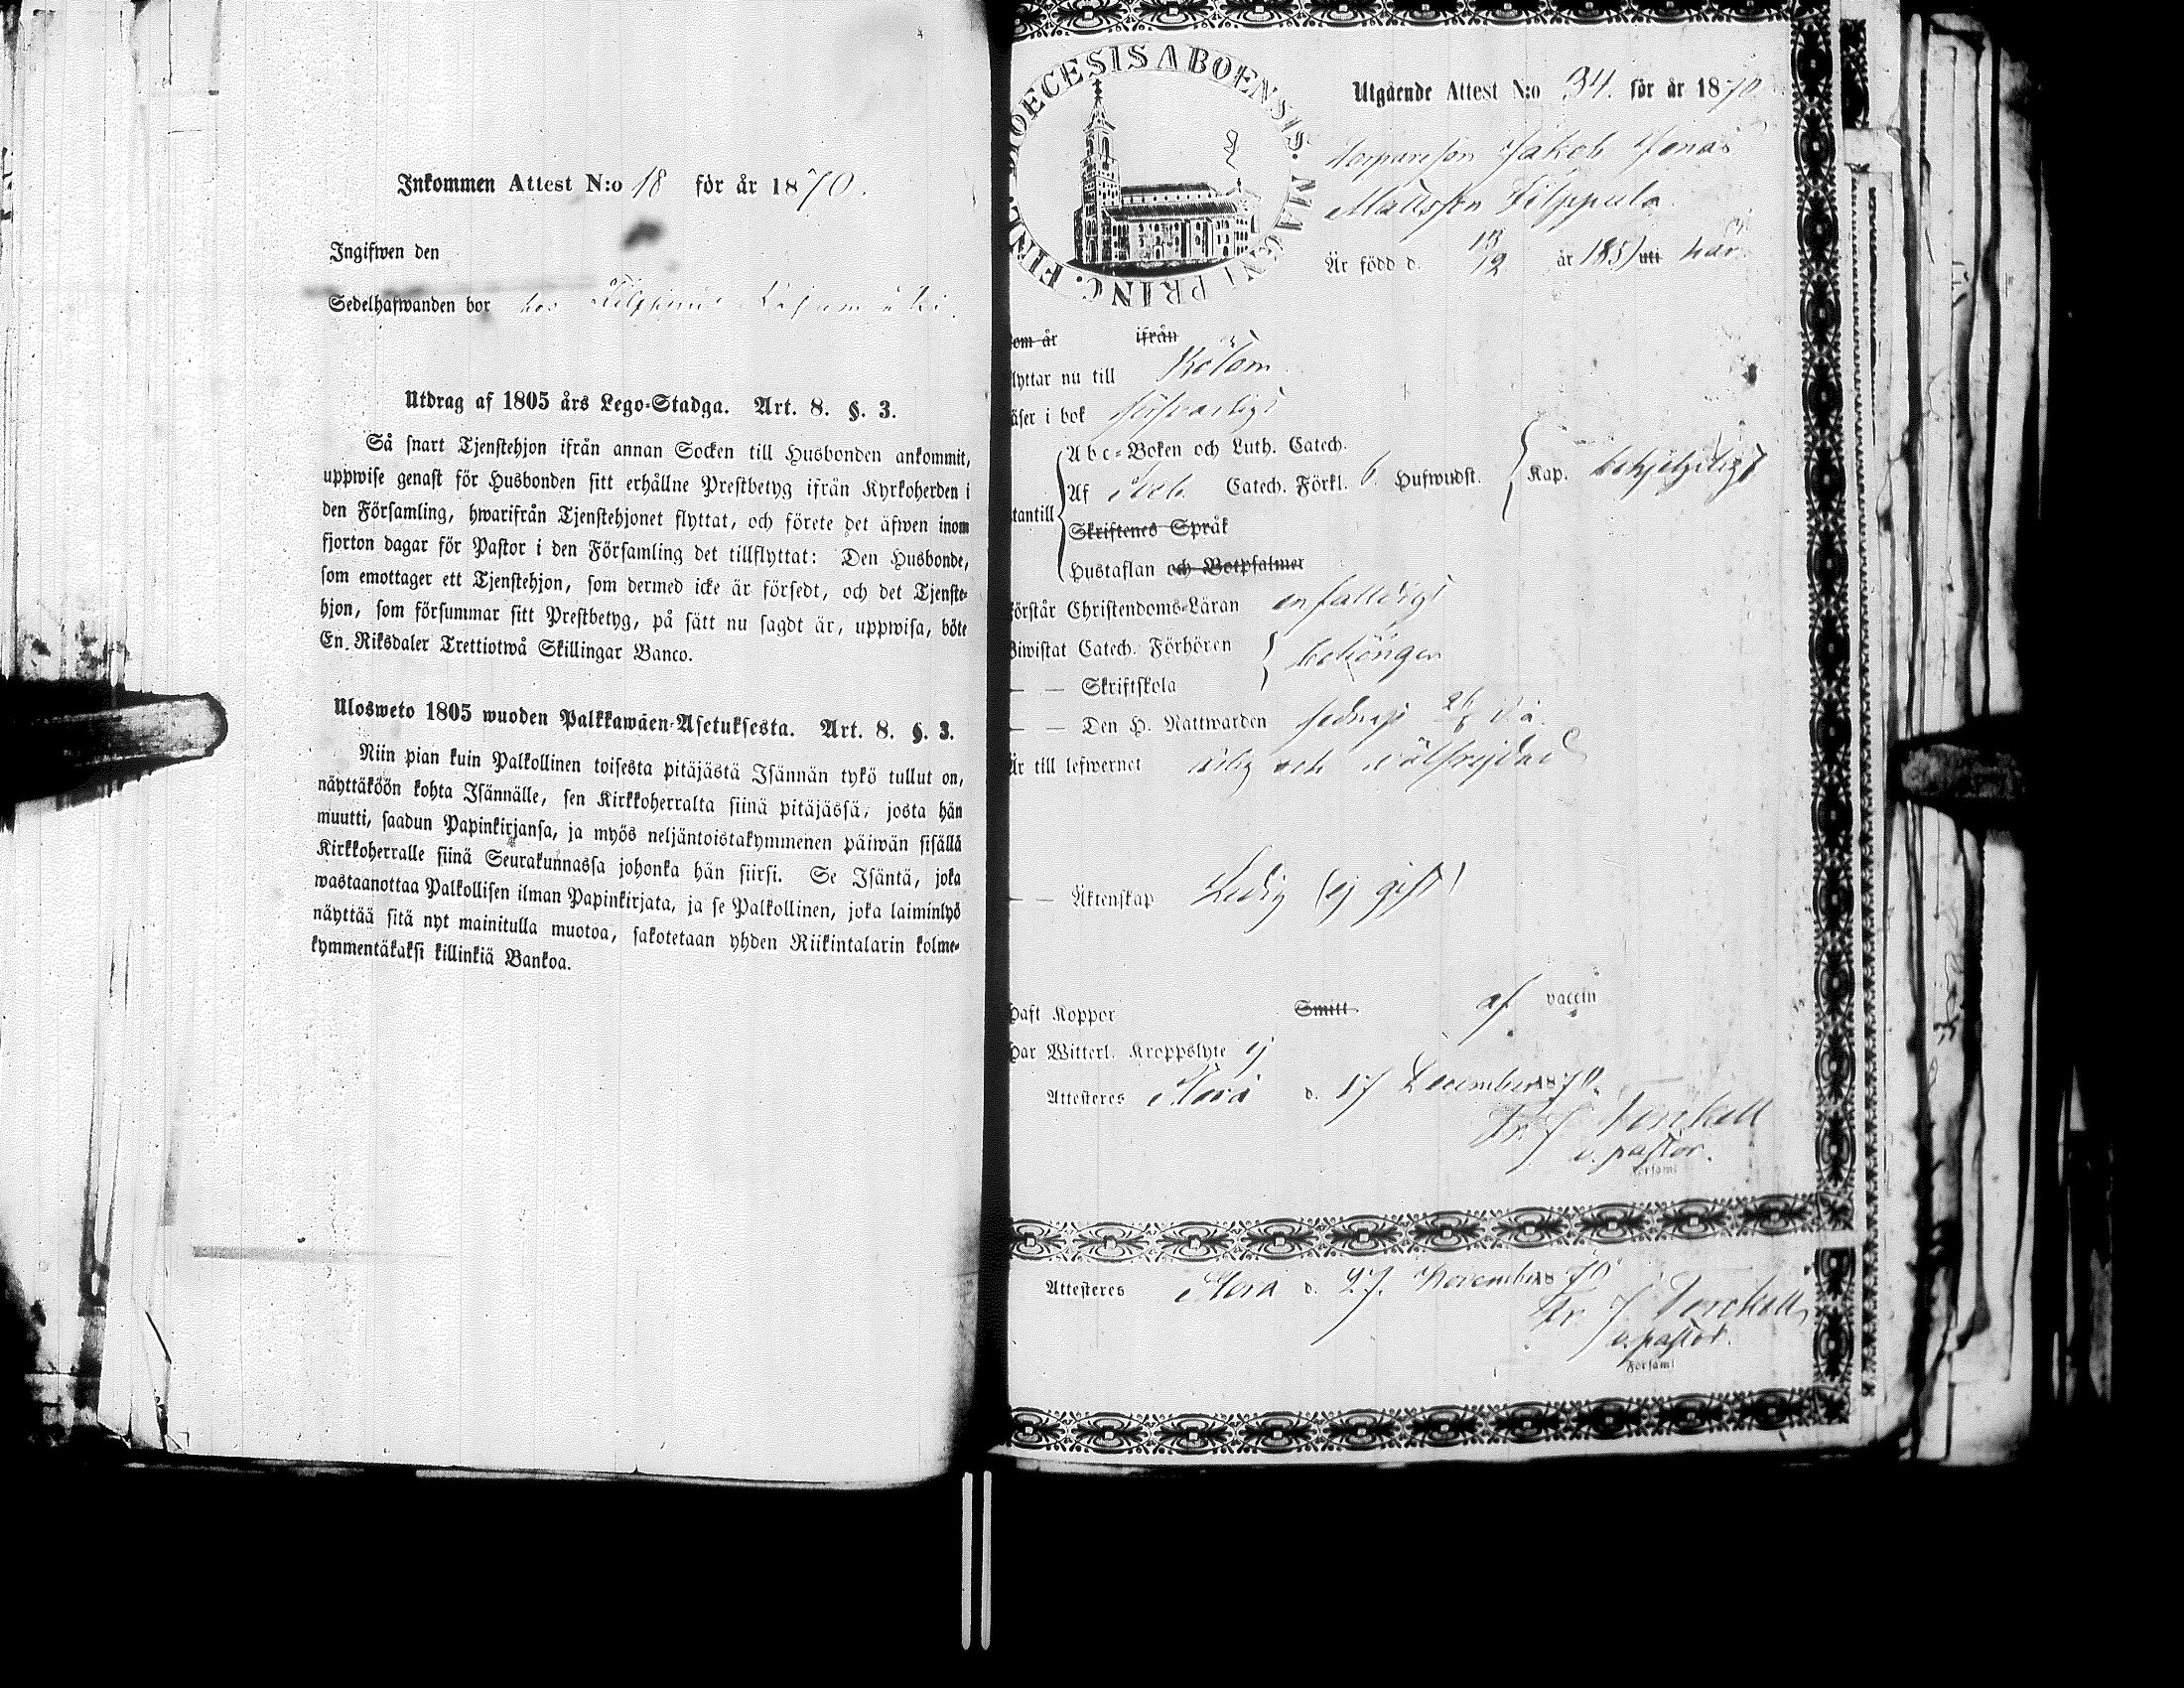 Inkommen Attest N:o 18 för år 1870.
Ingifwen den
Sedelhafwanden bor hos
Utdrag af 1805 års Lego-Stadga. Art. 8. §. 3.
Så snart Tjenstehjon ifrån annan Socken till Husbonden ankommit,
uppwise genast för Husbonden sitt erhållne Prestbetyg ifrån Kyrkoherden i
den Församling, hwarifrån Tjenstehjonet flyttat, och förete det äfwen inom
fjorton dagar för Pastor i den Församling det tillflyttat: Den Husbonde,
som emottager ett Tjenstehjon, som dermed icke är försedt, och det Tjenste-
hjon, som försummar sitt Prestbetyg, på sätt nu sagdt är, uppwisa, böte
En Riksdaler Trettiotwå Skillingar Banco.
Ulosweto 1805 wuoden Palkkawäen-Asetuksesta. Art. 8. §. 3.
Niin pian kuin Palkollinen toisesta pitäjästä Isännän tykö tullut on,
näyttäköön kohta Isännälle, sen Kirkkoherralta siinä pitäjässä, josta hän
muutti, saadun Papinkirjansa, ja myös neljäntoistakymmenen päiwän sisällä
Kirkkoherralle siinä Seurakunnassa johonka hän siirsi. Se Isäntä, joka
wastaanottaa Palkollisen ilman Papinkirjata, ja se Palkollinen, joka laiminlyö
näyttää sitä nyt mainitulla muotoa, sakotetaan yhden Riikintalarin kolme-
kymmentäkaksi killinkiä Bankoa.
DIOECESIS ABOENSIS. MAGNI PRINC. FINL.
Utgående Attest N:o 34. för år 1870
Torpareson Jakob Jonas
Mattsson Filppula.
Är född d. 13/12 år 1851 uti här
om år ifrån
lyttar nu till
äser i bok försvarligt
tantill
Abc-Boken och Luth. Catech.
Af Catech. Förkl. 6. Hufwudst. Kap. behjelpligt
Skriftenes Språk
Hustaflan och Botpsalmer
örstår Christendoms-Läran enfaldigt
Biwistat Catech. Förhören behörigen
— — Skriftskola
— — Den H. Nattwarden sednast d. å.
Är till lefwernet ärlig och välfrejdad
— — Äktenskap Ledig (ej gift)
Haft Koppor Smitt af vaccin
Har Witterl. Kroppslyte ej
Attesteres d. 17 December 1870.
Fr. J. Forckell
v. pastor.
Församl
Attesteres d. 27. November 1870
Fr. J. Forckell,
v. pastor.
Församl